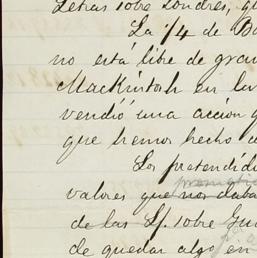 Letras sobre Londres, q
La 1/4 de Ba
no está libre de gra
MacKintosh en la
vendió una acción q
que hemos hecho a
Los pretendid
valores que nos daba
de las Lp. sobre Gu
de quedar algo en